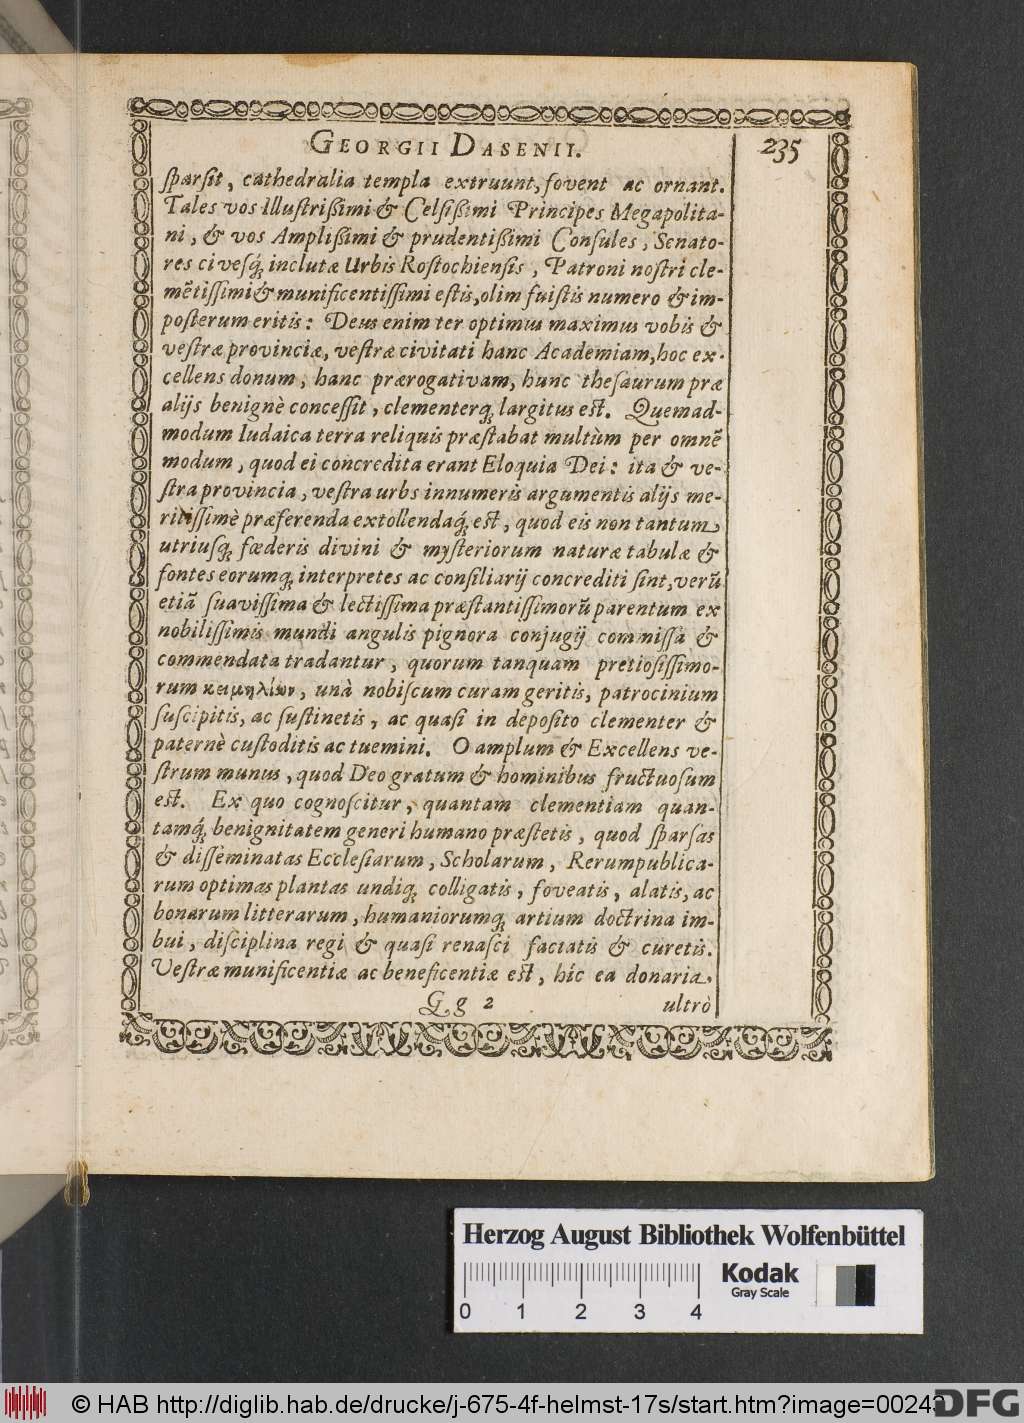 GEORGII DASENII. 235
sparsit, cathedralia templa extruunt, fovent ac ornant.
Tales vos Illustrißimi & Celsißimi Principes Megapolita-
ni, & vos Amplißimi & prudentißimi Consules, Senato-
res civesq́; inclutæ Urbis Rostochiensis, Patroni nostri cle-
mẽtissimi & munificentissimi estis, olim fuistis numero & im-
posterum eritis: Deus enim ter optimus maximus vobis &
vestræ provinciæ, vestræ civitati hanc Academiam, hoc ex-
cellens donum, hanc prærogativam, hunc thesaurum præ
alijs benignè concessit, clementerq; largitus est. Quemad-
modum Iudaica terra reliquis præstabat multùm per omnẽ
modum, quod ei concredita erant Eloquia Dei: ita & ve-
stra provincia, vestra urbs innumeris argumentis alijs me-
ritissimè præferenda extollendaq́; est, quod eis non tantum
utriusq; fœderis divini & mysteriorum naturæ tabulæ &
fontes eorumq; interpretes ac consiliarij concrediti sint, verũ
etiã suavissima & lectissima præstantissimorũ parentum ex
nobilissimis mundi angulis pignora conjugij commissa &
commendata tradantur, quorum tanquam pretiosissimo-
rum κειμηλίων, unà nobiscum curam geritis, patrocinium
suscipitis, ac sustinetis, ac quasi in deposito clementer &
paternè custoditis ac tuemini. O amplum & Excellens ve-
strum munus, quod Deo gratum & hominibus fructuosum
est. Ex quo cognoscitur, quantam clementiam quan-
tamq́; benignitatem generi humano præstetis, quod sparsas
& disseminatas Ecclesiarum, Scholarum, Rerumpublica-
rum optimas plantas undiq; colligatis, foveatis, alatis, ac
bonarum litterarum, humaniorumq; artium doctrina im-
bui, disciplina regi & quasi renasci faciatis & curetis.
Vestræ munificentiæ ac beneficentiæ est, hîc ea donaria
Gg 2 ultrò
Herzog August Bibliothek Wolfenbüttel
Kodak
Gray Scale
0 1 2 3 4
© HAB http://diglib.hab.de/drucke/j-675-4f-helmst-17s/start.htm?image=00243
DFG